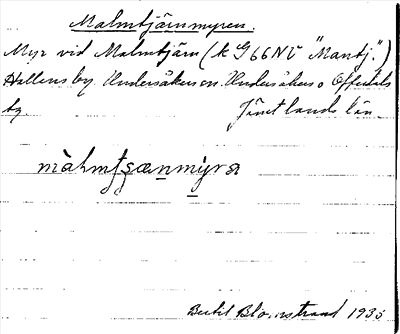 Malmtjärnmyren.
Myr vid Malmtjärn (k G66NV "Mantj.")
Hallens by. Undersåkers sn. Undersåkers o Offerdals
tg. Jämtlands län.
màlmtʃænmyra
Bertil Blomstrand 1935